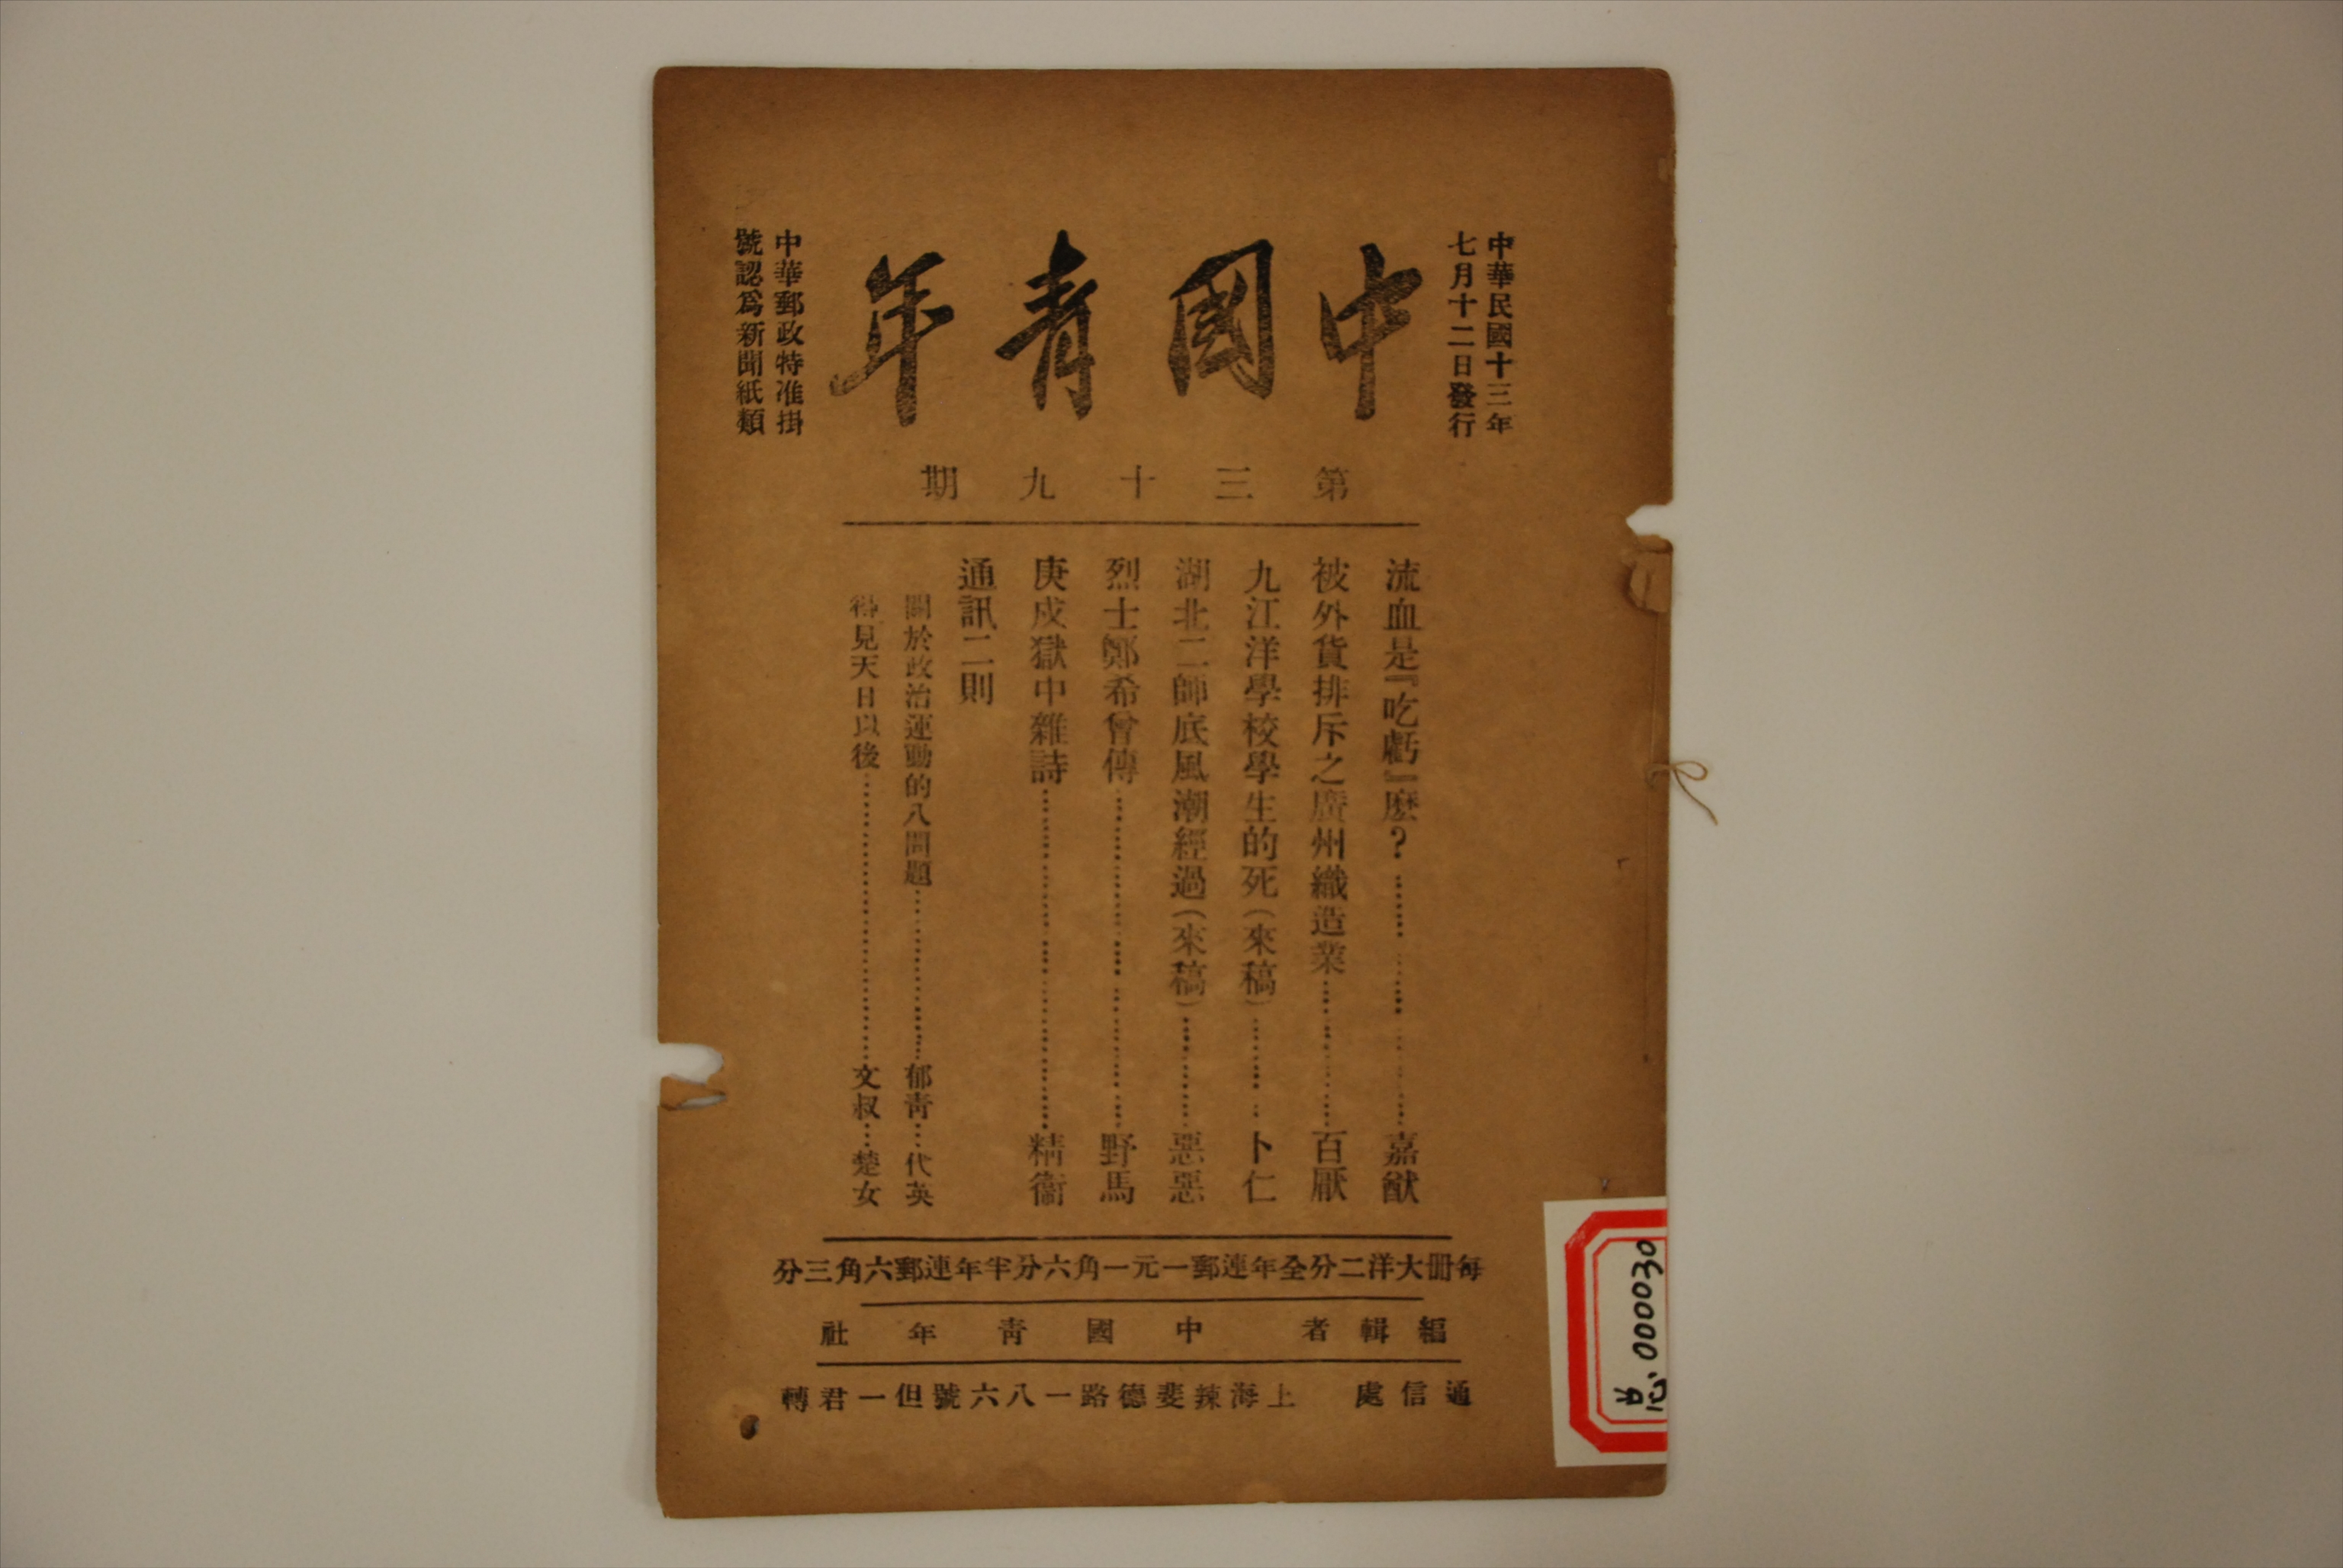 中華民國十三年
七月十二日發行
中國青年
中華郵政特准掛
號認爲新聞紙類
第三十九期
流血是『吃虧』麽？…………………嘉猷
被外貨排斥之廣州織造業…………………百厭
九江洋學校學生的死（來稿）…………………卜仁
湖北二師底風潮經過（來稿）…………………惡惡
烈士鄭希曾傳…………………野馬
庚戍獄中雜詩…………………精衞
通訊二則
關於政治運動的八問題…………………郁靑…代英
得見天日以後…………………文叔…楚女
每册大洋二分全年連郵一元一角六分半年連郵六角三分
編輯者 中國靑年社
通信處 上海辣斐德路一八六號但一君轉
0000030